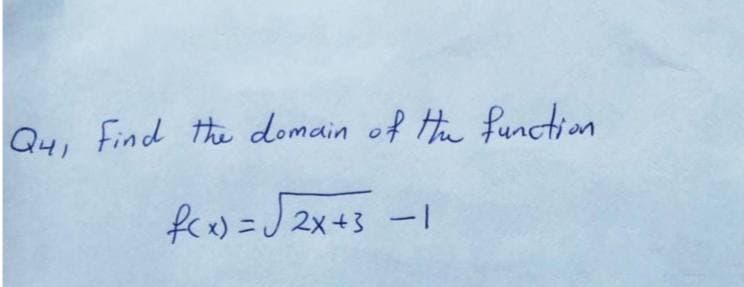 Q4, Find the domain of the function
f(x) = √2x+3 -1